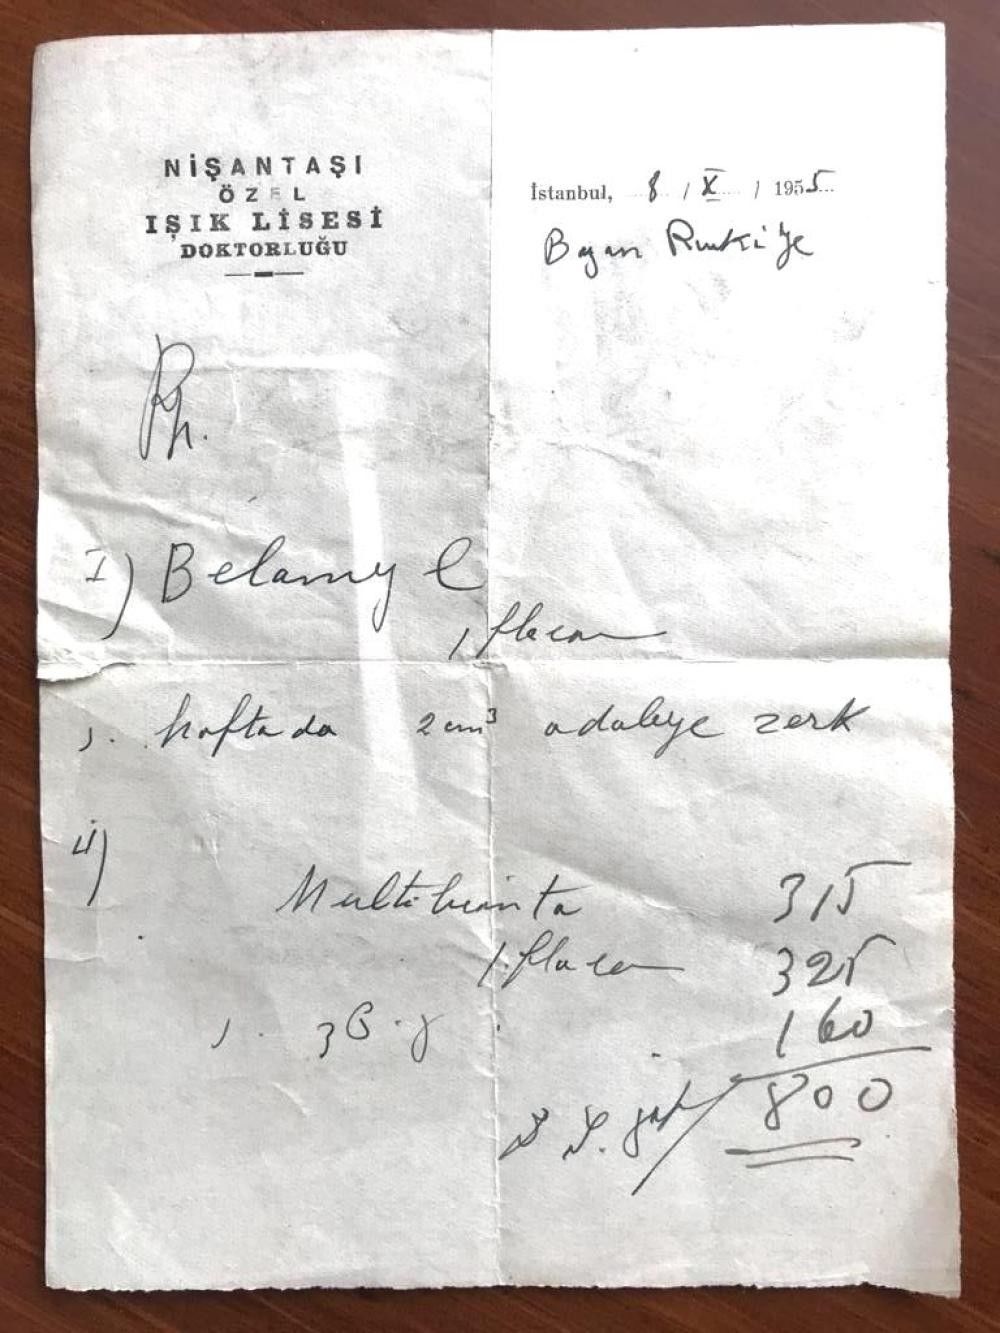 NİŞANTAŞI
ÖZEL
IŞIK LİSESİ
DOKTORLUĞU
İstanbul, 8 / X / 1955
Bayan
Rp.
I) Belamyl
1 flacon
S. haftada 2 cm³ adaleye zerk
II)
1 flacon
S. 3
315
325
160
800